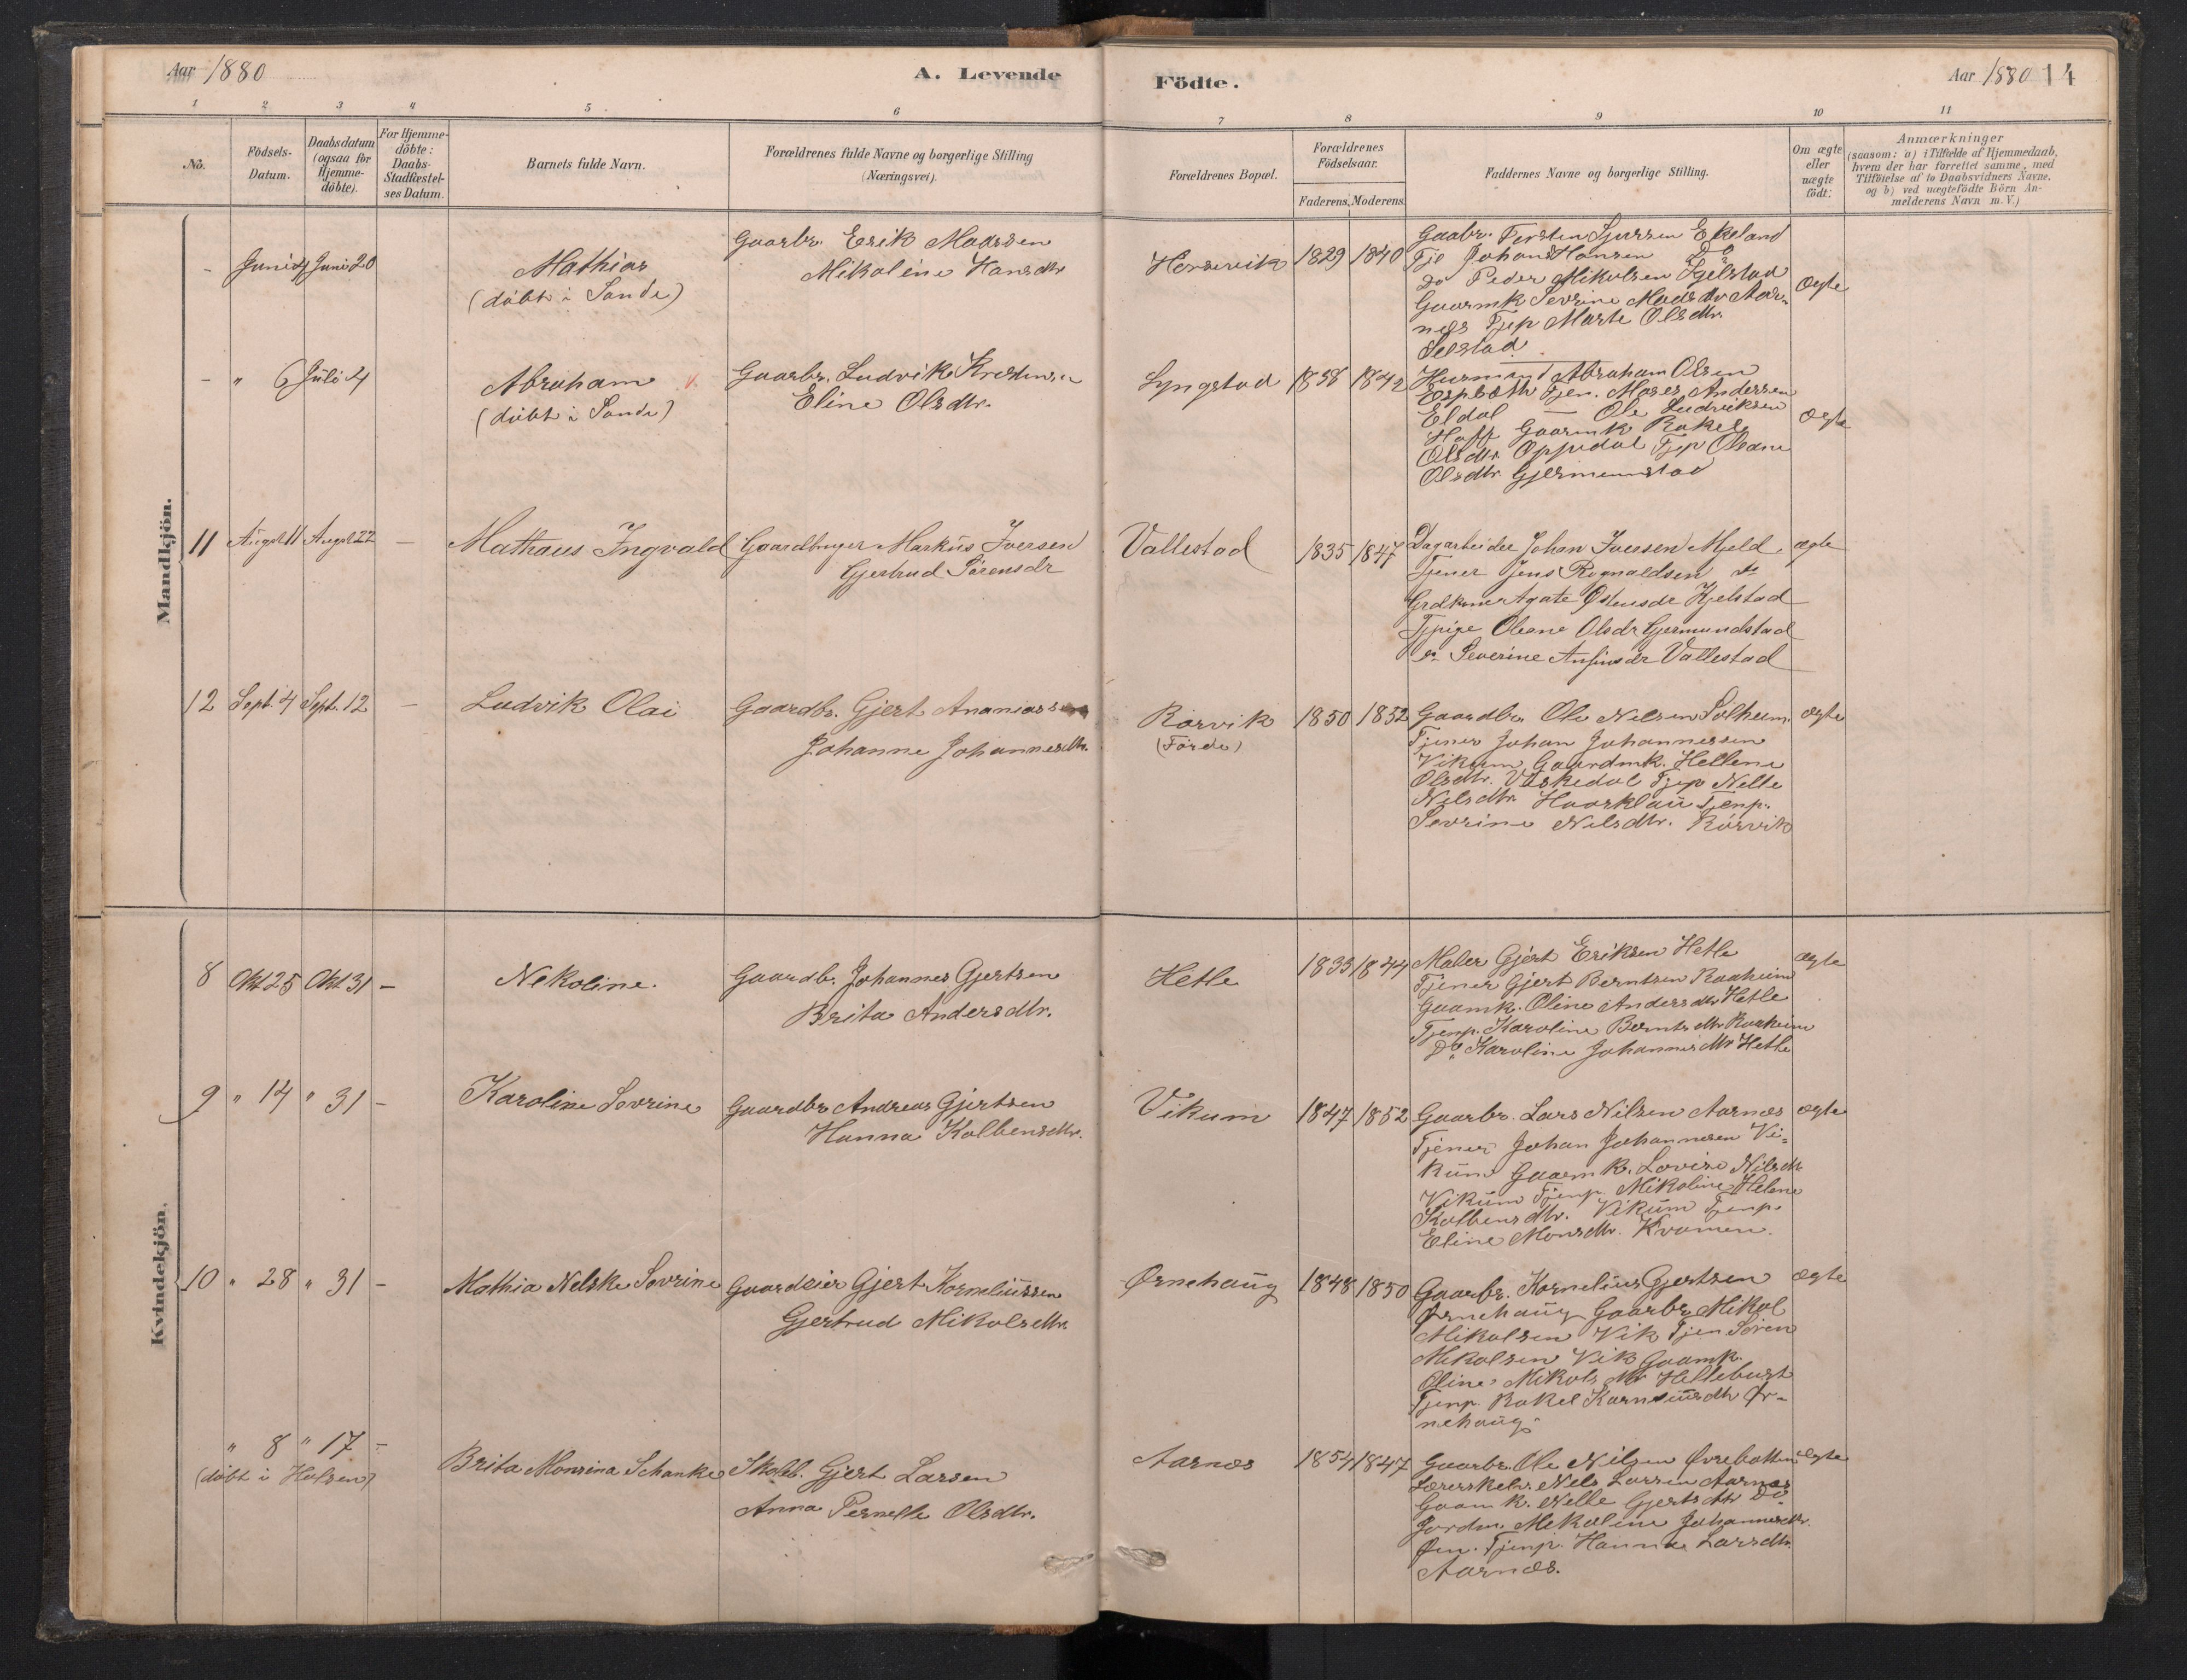 Aar 1880
A. Levende
Födte.
Aar 1880 14
1 2 3 4 5 6 7 8 9 10 11
No.
Födsels-
Datum.
Daabsdatum
(ogsaa for
Hjemme-
döbte).
For Hjemme-
döbte:
Daabs-
Stadfæstel-
ses Datum.
Barnets fulde Navn.
Forældrenes fulde Navne og borgerlige Stilling
(Næringsvei).
Forældrenes Bopæl.
Forældrenes
Födselsaar.
Faderens, Moderens.
Faddernes Navne og borgerlige Stilling.
Om ægte
eller
uægte
födt:
Anmærkninger
(saasom: a) i Tilfælde af Hjemmedaab,
hvem der har forrettet samme, med
Tilföielse af to Daabsvidners Navne,
og b) ved uægtefödte Börn An-
melderens Navn m. V.)
Mandkjön.
- Juni Juni 20
Mathias
(döbt i Sande)
Gaarbr. Erik Madssen
Mikoline Hansdtr
1829 1840
Gaabr. Torsten Sjursen Ekeland
Tje Johan Hansen Do
Do Peder Mikolsen Kjelstad
Gaarmk Sevrine Madsdtr Aar-
nes Tjep Marte Olsdtr.
Selstad
Ægte
- " 6 Juli 4
Abraham v.
(döbt i Sande)
Gaarbr. Ludvik
Eline Olsdtr.
Lyngstad
1838 1842
Husmand Abraham Olsen
Tjen. Moses Andersen
Eldal — Ole Ludviksen
Hoff Gaarmk Rakel
Olsdtr. Oppedal Tjep Oleane
Olsdtr. Gjermunstad
Ægte
11 Augst 11 Augst 22 —
Mathæus Ingvald
Gaardbruger Markus Iversen
Gjertrud Sörensdr
Vallestad
1835 1847
Dagarbeider Johan Iversen Mjeld
Tjener Jens Rognaldsen do
Grdkone Agate Østensdr Kjelstad
Tjpige Oleane Olsdr Gjermundstad
do Severine Anfinsdr Vallestad
ægte
12 Sept. 4 Sept. 12 —
Ludvik Olai
Gaardbr. Gjert Ananiassen
Johanne Johannesdtr.
Rörvik
(Förde)
1850 1852
Gaardbr. Ole Nelsen Solheim
Tjener Johan Johannessen
Vikum Gaardmk. Hellene
Olsdtr. Vaskedal Tjep Nelle
Nelsdtr. Haarklau Tjenp.
Sevrine Nelsdtr. Rörvik
Ægte
Kvindekjön.
8 Okt 25 Okt 31 —
Nekoline.
Gaardb. Johannes Gjertsen
Brita Andersdtr.
Hetle
1833 1844
Maler Gjert Eriksen Hetle
Tjener Gjert Berntsen Raaheim
Gaamk. Oline Andersdtr Hetle
Tjenp. Karoline Berntsdtr Raaheim
Do Karoline Johannesdtr Hetle
Ægte
9 " 14 " 31 —
Karoline Sevrine
Gaardbr Andreas Gjertsen
Hanna Kolbensdtr.
Vikum
1847 1852
Gaarbr. Lars Nilsen Aarnæs
Tjener Johan Johannesen Vi-
kum Gaarmk. Lovise Nilsdtr
Vikum Tjenp. Mikoline Helene
Kolbensdtr. Vikum Tjenp.
Eline Monsdtr. Kvamen.
Ægte
10 " 28 " 31 —
Mathia Nelske Sevrine
Gaardeier Gjert Korneliussen
Gjertrud Mikolsdtr.
Ørnehaug
1848 1850
Gaarbr. Kornelius Gjertsen
Ørnehaug Gaarbr Mikol
Mikolsen Vik Tjen Sören
Mikolsen Vik Gaamk.
Oline Mikolsdtr Hellebust
Tjenp. Rakel Korneliusdtr Ør-
nehaug.
Ægte
" 8 " 17 —
(döbt i Holsen)
Brita Monsina Schanke
Skoleb. Gjert Larsen
Anna Pernelle Olsdtr.
Aarnæs
1854 1847
Gaarbr. Ole Nilsen Øvrebotten
Nels Larsen Aarnæs
Gaamk. Nelle Gjertsdtr Do
Jordm. Mikoline Johannesdtr.
Øen. Tjenp. Hanna Larsdtr.
Aarnæs.
Ægte